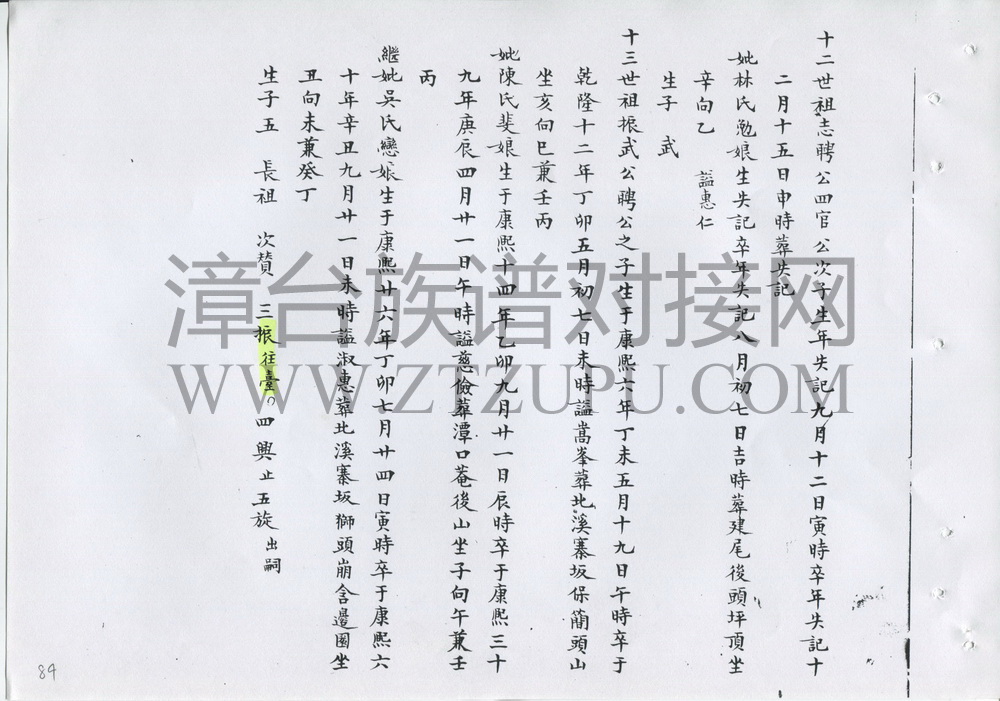 十二世祖志聘公四官公次子生年失記九月十二日寅時卒年失記十
二月十五日申時葬失記
妣林氏勉娘生失記卒年失記八月初七日吉時葬建尾後頭坪頂坐
辛向乙 謚惠仁
生子 武
十三世祖振武公聘公之子生于康熙六年丁未五月十九日午時卒于
乾隆十二年丁卯五月初七日未時謚嵩峯葬北溪寨坂保蘭頭山
坐亥向巳兼壬丙
妣陳氏斐娘生于康熙十四年乙卯九月廿一日辰時卒于康熙三十
九年庚辰四月廿一日午時謚慈儉葬潭口菴後山坐子向午兼壬
丙
繼妣吳氏戀娘生于康熙廿六年丁卯七月廿四日寅時卒于康熙六
十年辛丑九月廿一日未時謚淑惠葬北溪寨坂獅頭崩含邊園坐
丑向未兼癸丁
生子五 長祖 次贊 三振往臺。四興止五旋出嗣
84
漳台族谱对接网
WWW.ZTZUPU.COM